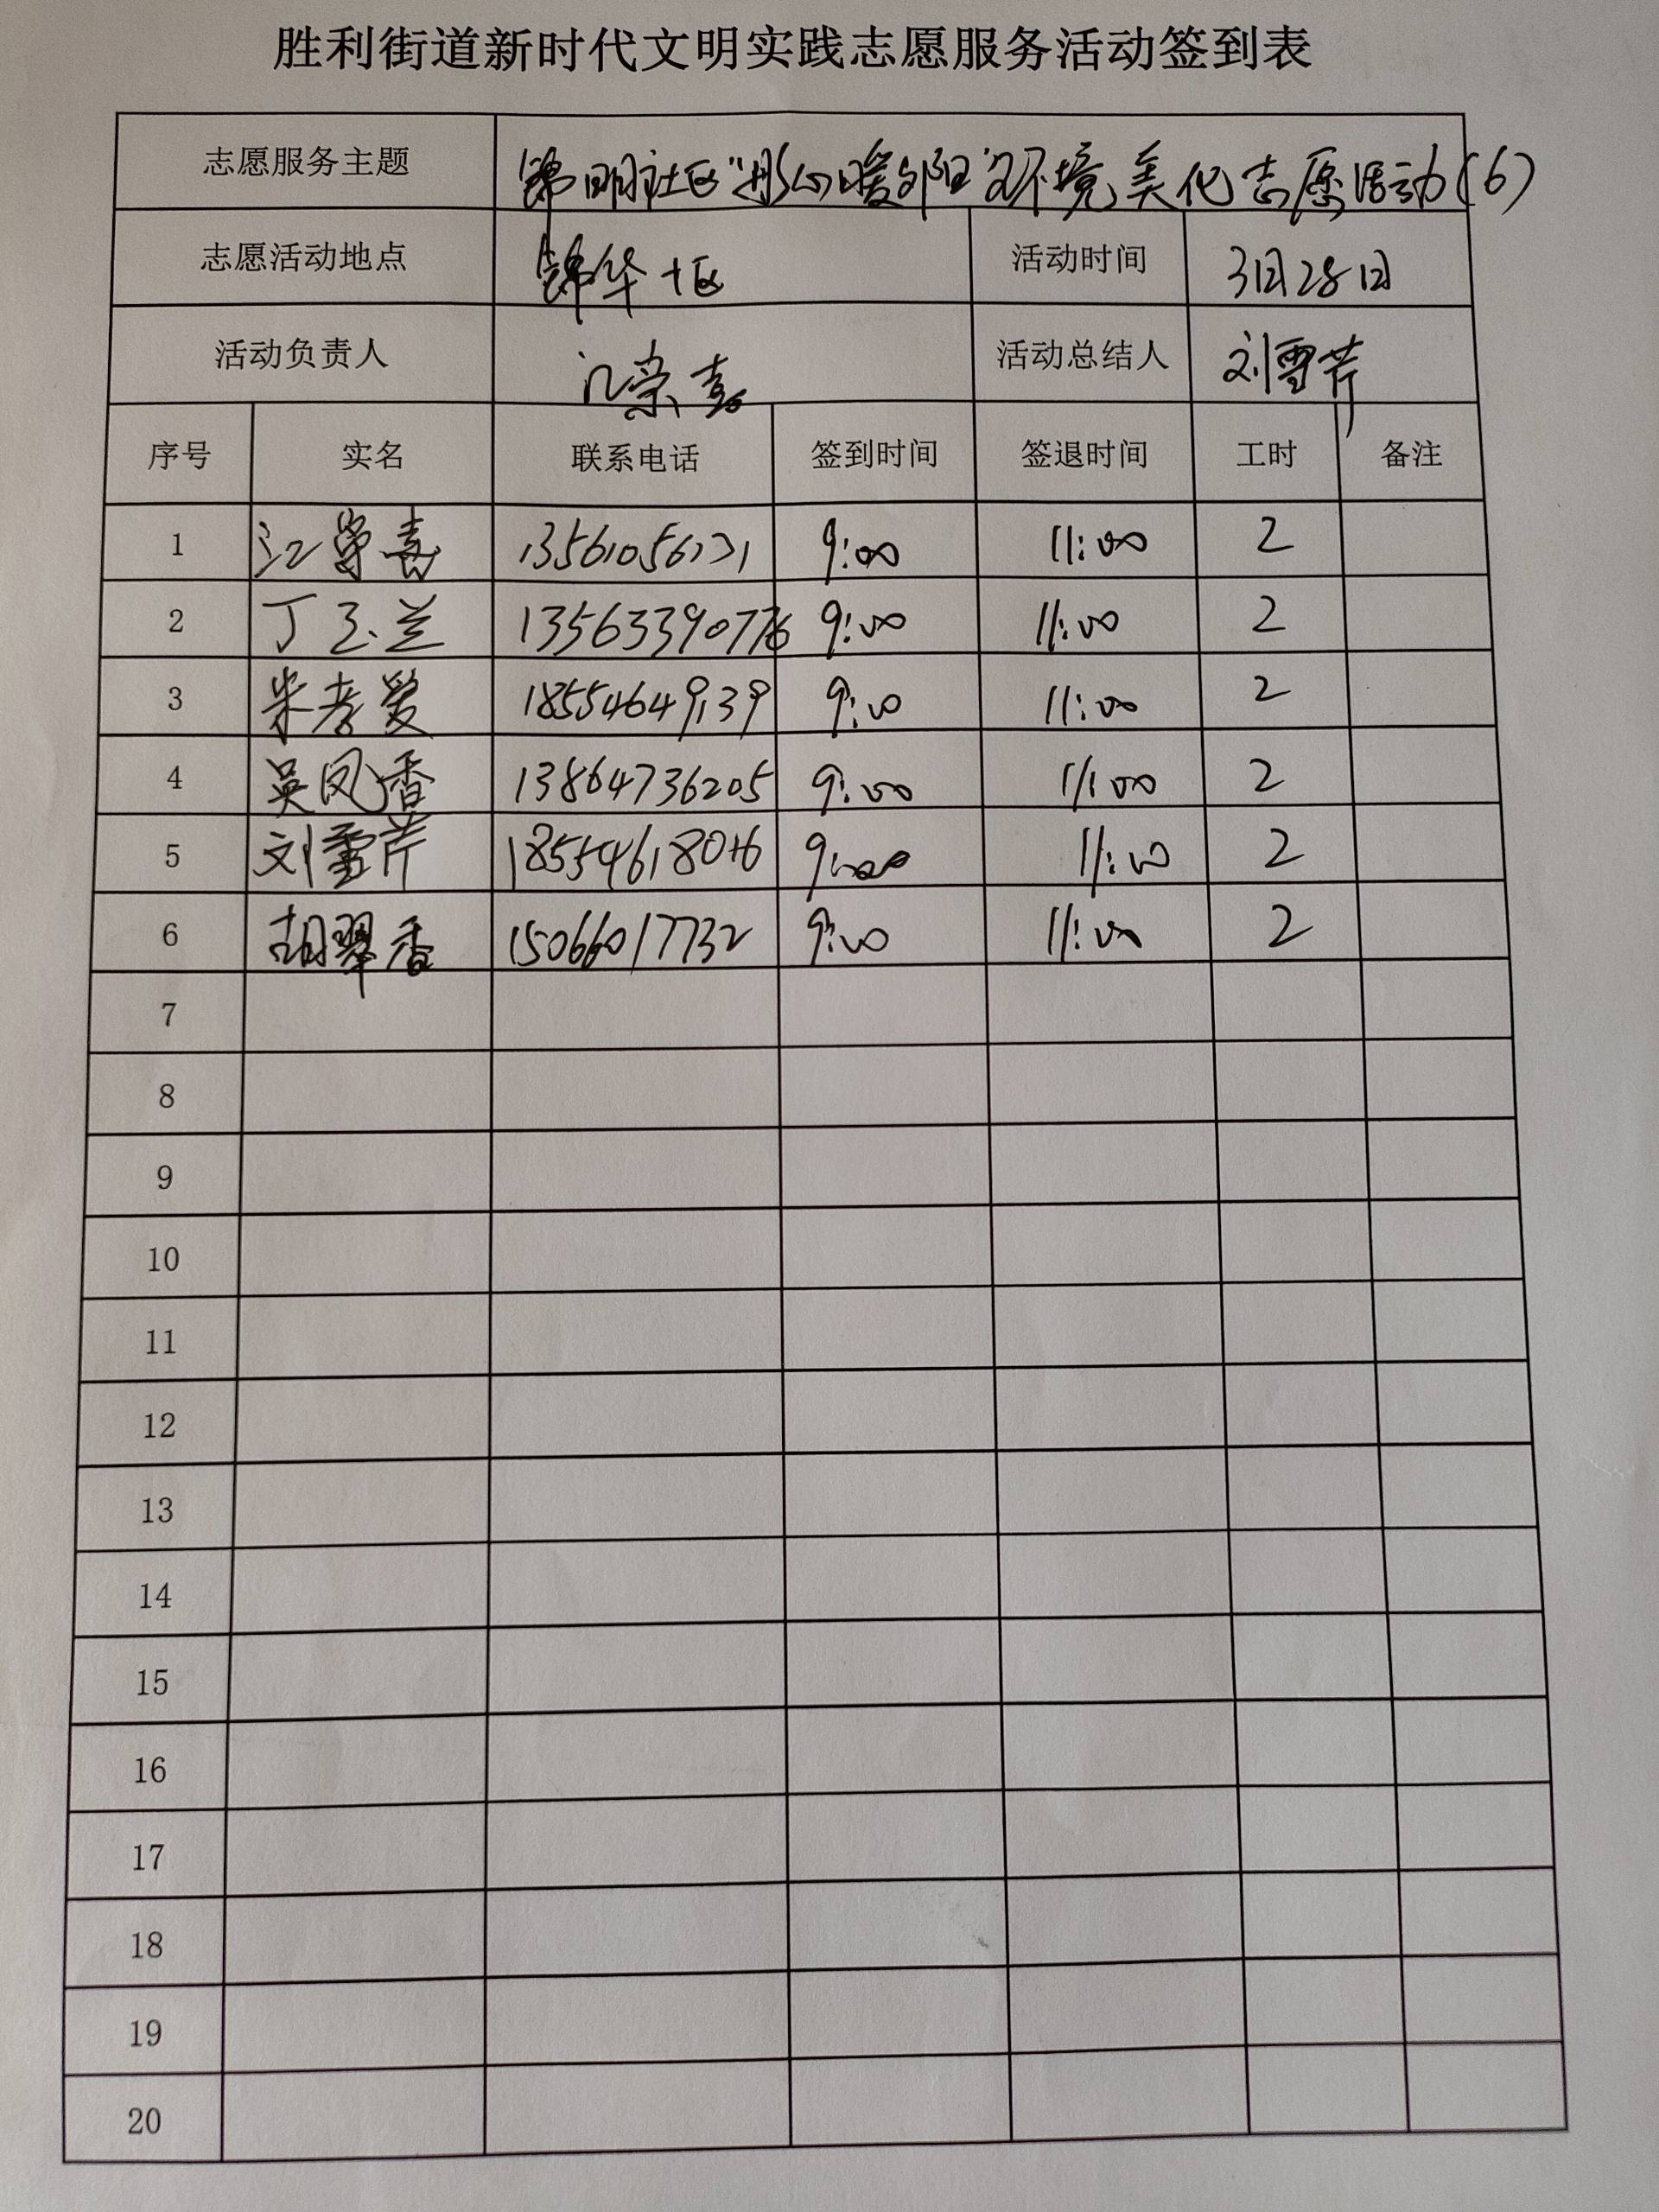 胜利街道新时代文明实践志愿服务活动签到表
志愿服务主题 锦明社区"彤心暖夕阳"之环境美化志愿活动(6)
志愿活动地点 锦华十区 活动时间 3月28日
活动负责人 江荣喜 活动总结人 刘雪芹
序号 实名 联系电话 签到时间 签退时间 工时 备注
1 江荣喜 9:00 11:00 2
2 丁玉兰 13563390776 9:00 11:00 2
3 朱孝爱 18554649139 9:00 11:00 2
4 吴凤香 13864736205 9:00 11:00 2
5 刘雪芹 9:00 11:00 2
6 胡翠香 15066017732 9:00 11:00 2
7
8
9
10
11
12
13
14
15
16
17
18
19
20